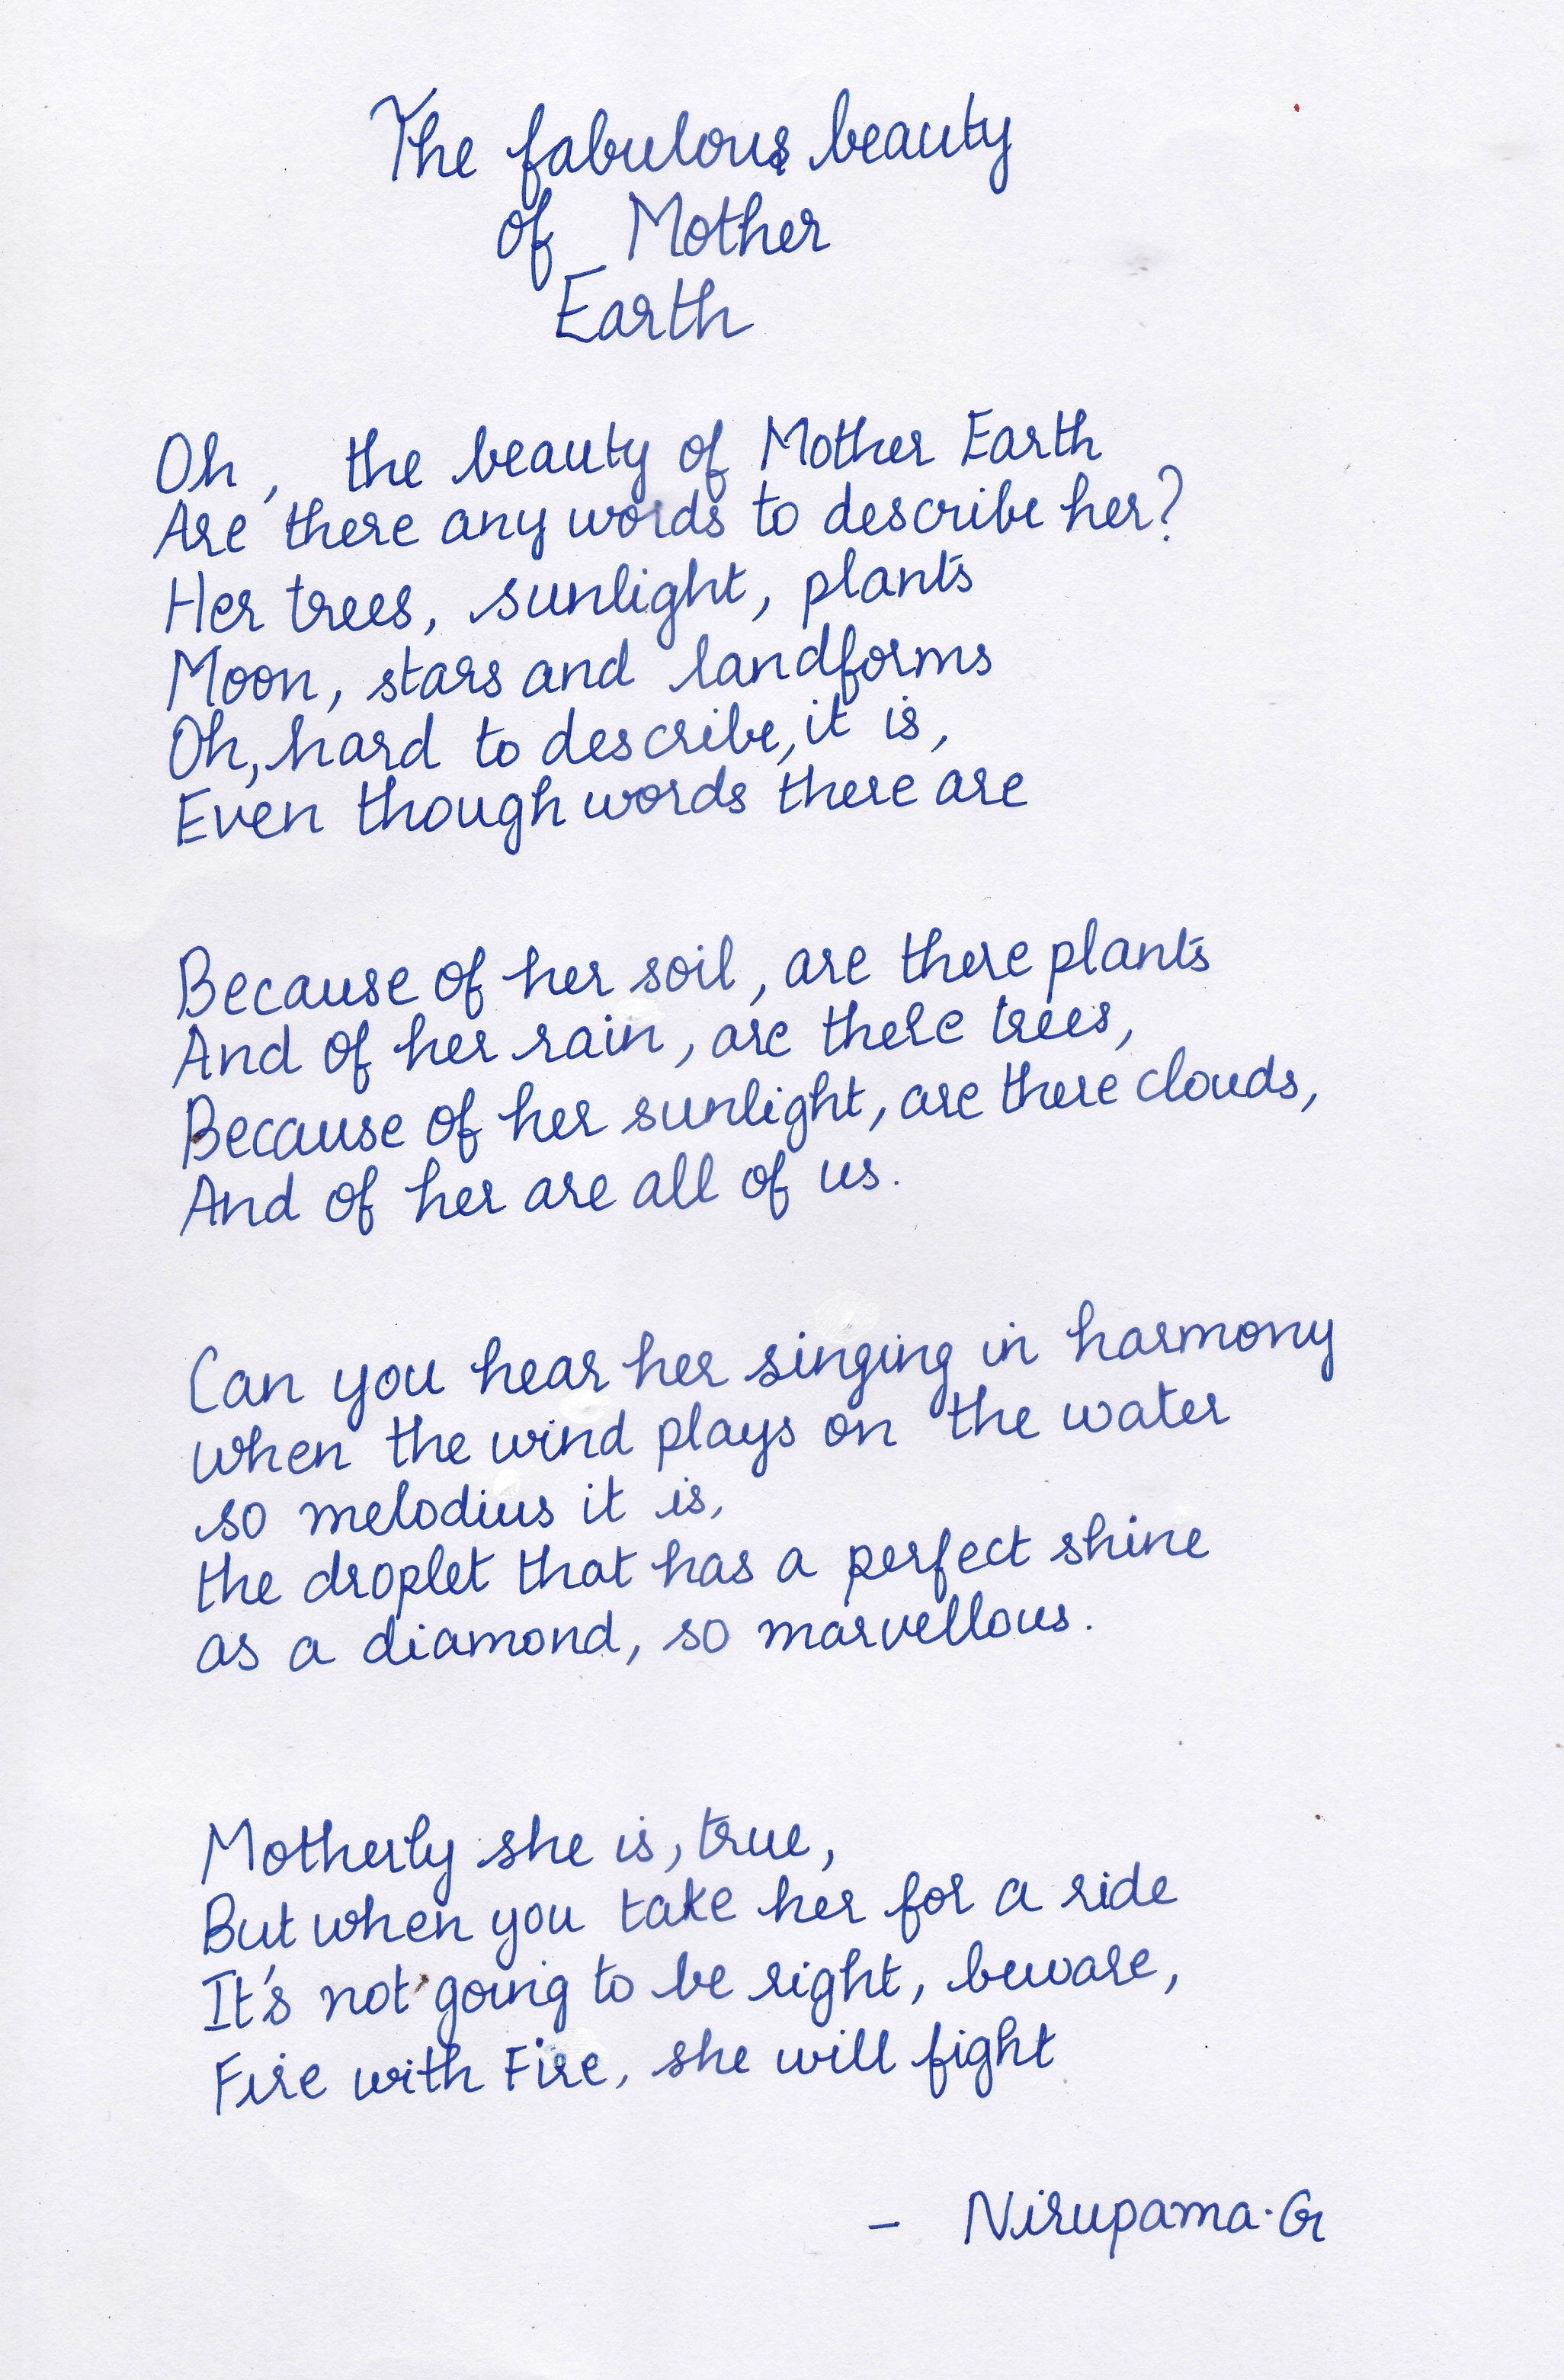 The fabulous beauty
of Mother
Earth
Oh, the beauty of Mother Earth
Are there any words to describe her?
Her trees, sunlight, plants
Moon, stars and landforms
Oh, hard to describe, it is,
Even though words there are
Because of her soil, are there plants
And of her rain, are there trees,
Because of her sunlight, are there clouds,
And of her are all of us.
Can you hear her singing in harmony
when the wind plays on the water
so melodius it is,
the droplet that has a perfect shine
as a diamond, so marvellous.
Motherly she is, true,
But when you take her for a ride
It's not going to be right, beware,
Fire with Fire, she will fight
- Nirupama.G